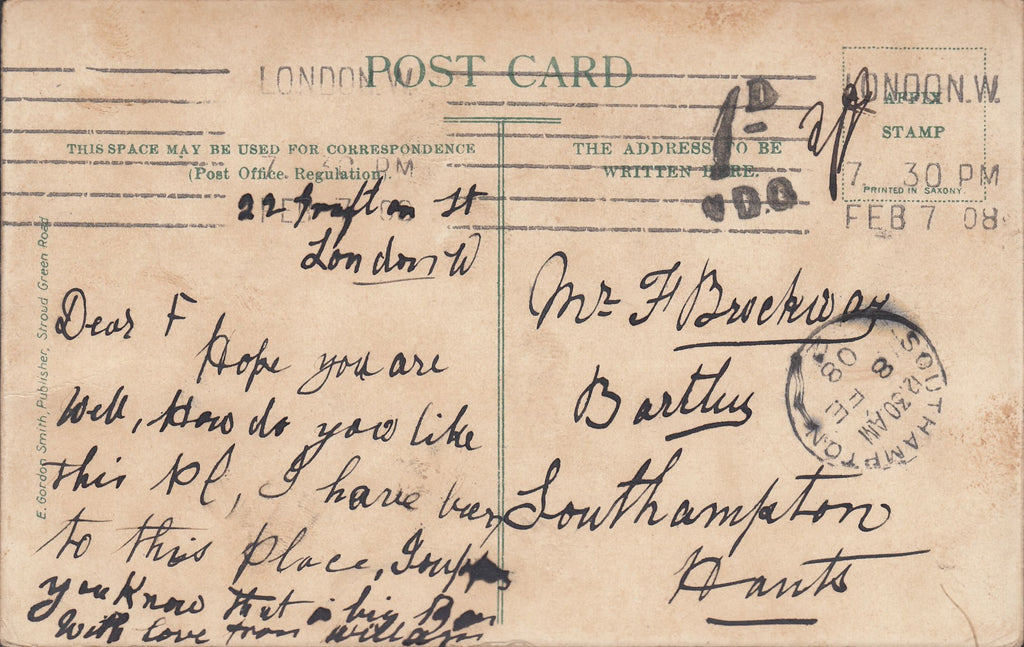 POST CARD
LONDON.W.
LONDON.W.
AFFIX
STAMP
PRINTED IN SAXONY.
7 30 PM
FEB 7 08
7 30 PM
FEB 7 08
1D
D.O
THIS SPACE MAY BE USED FOR CORRESPONDENCE
(Post Office Regulation).
THE ADDRESS TO BE
WRITTEN HERE.
E. Gordon Smith, Publisher, Stroud Green Road
22 Grafton St
London W
Dear F
Hope you are
Well, How do you like
this Pl, I have been
to this Place,
you Know that a big
With love from William
Mr F Brockway
Southampton
Hants
SOUTHAMPTON
12.30 AM
FE 8
08